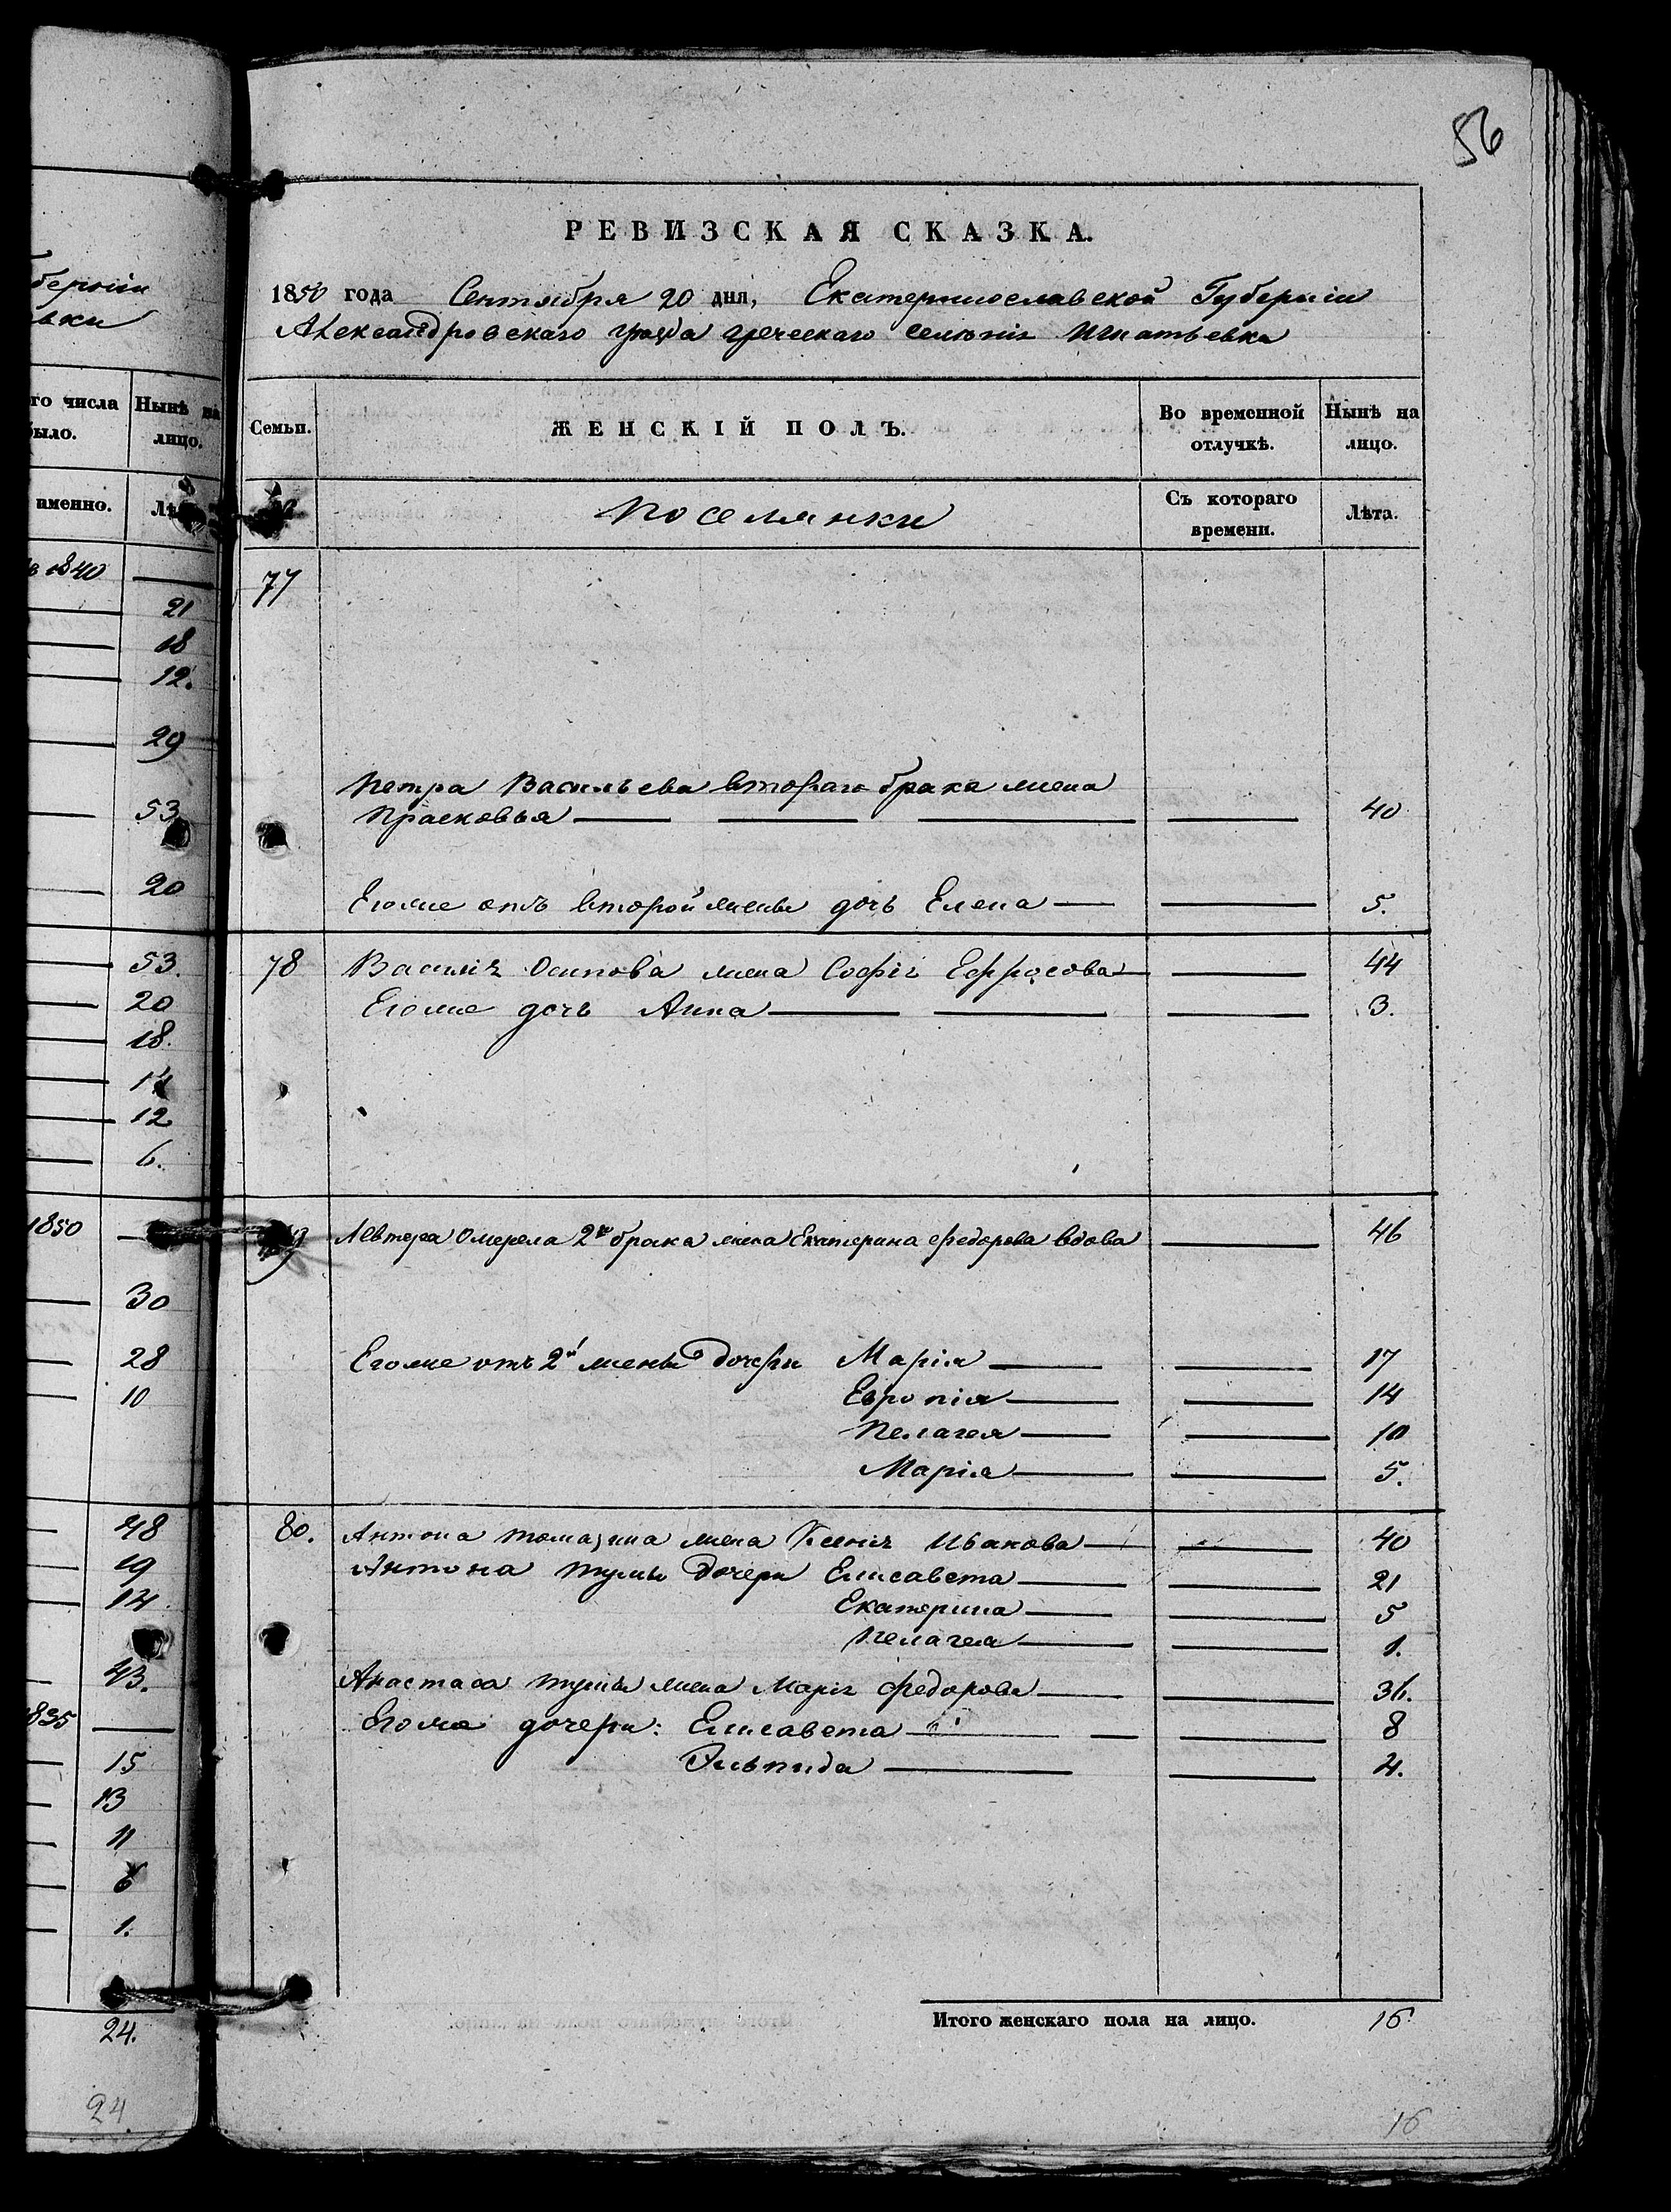 56
РЕВИЗСКАЯ СКАЗКА.
1850 года Сентября 20 дня, Екатеринославской Губерніи
Александровскаго уезда греческаго селенія Игнатьевка
Семьи.
ЖЕНСКІЙ ПОЛЪ.
Во временной отлучкѣ.
Нынѣ на лицо.
Поселянки
Съ котораго времени.
Лѣта.
77
Петра Васильева втораго брака жена
Прасковья 40
Егоже отъ второй жены дочь Елена 5.
78 Василія Осипова жена Софія Ефросова 44
Егоже дочь Анна 3.
79 Левтера Омерела 2го брака жена Екатерина Федорова вдова 46
Егоже отъ 2й жены дочери Марія 17
Европія 14
Пелагея 10
Марія 5.
80. Антона Томазина жена Ксенія Иванова 40
Антона Тумы дочери Елисавета 21
Екатерина 5
Пелагея 1.
Анастаса Тумы жена Марія Федорова 36.
Егоже дочери: Елисавета 8
Эльпида 4.
Итого женскаго пола на лицо. 16
16
берніи
вки
го числа было.
Нынѣ на лицо.
именно.
Лѣ
1840
21
18
12.
29
53
20
53.
20
18.
12
6.
1850
30
28
10
48
19
14
43.
1835
15
13
11
6
1.
24.
24